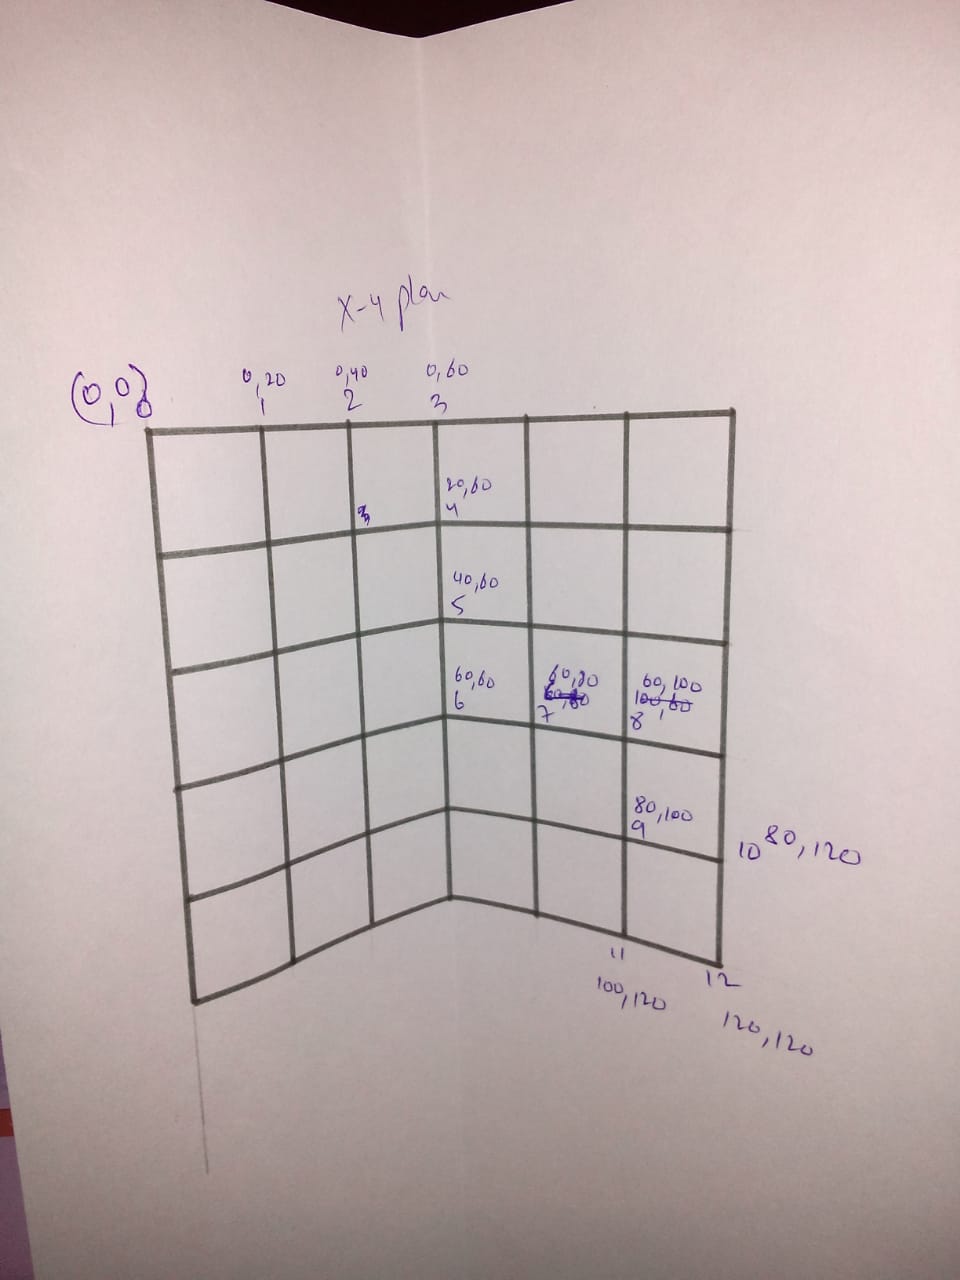 X-Y plan
(0,0) 0
0,20
1
0,40
2
0,60
3
3
20,60
4
40,60
5
60,60
6
60,80
7
60,100
100,60
8
80,100
9
10 80,120
11
100,120
12
120,120